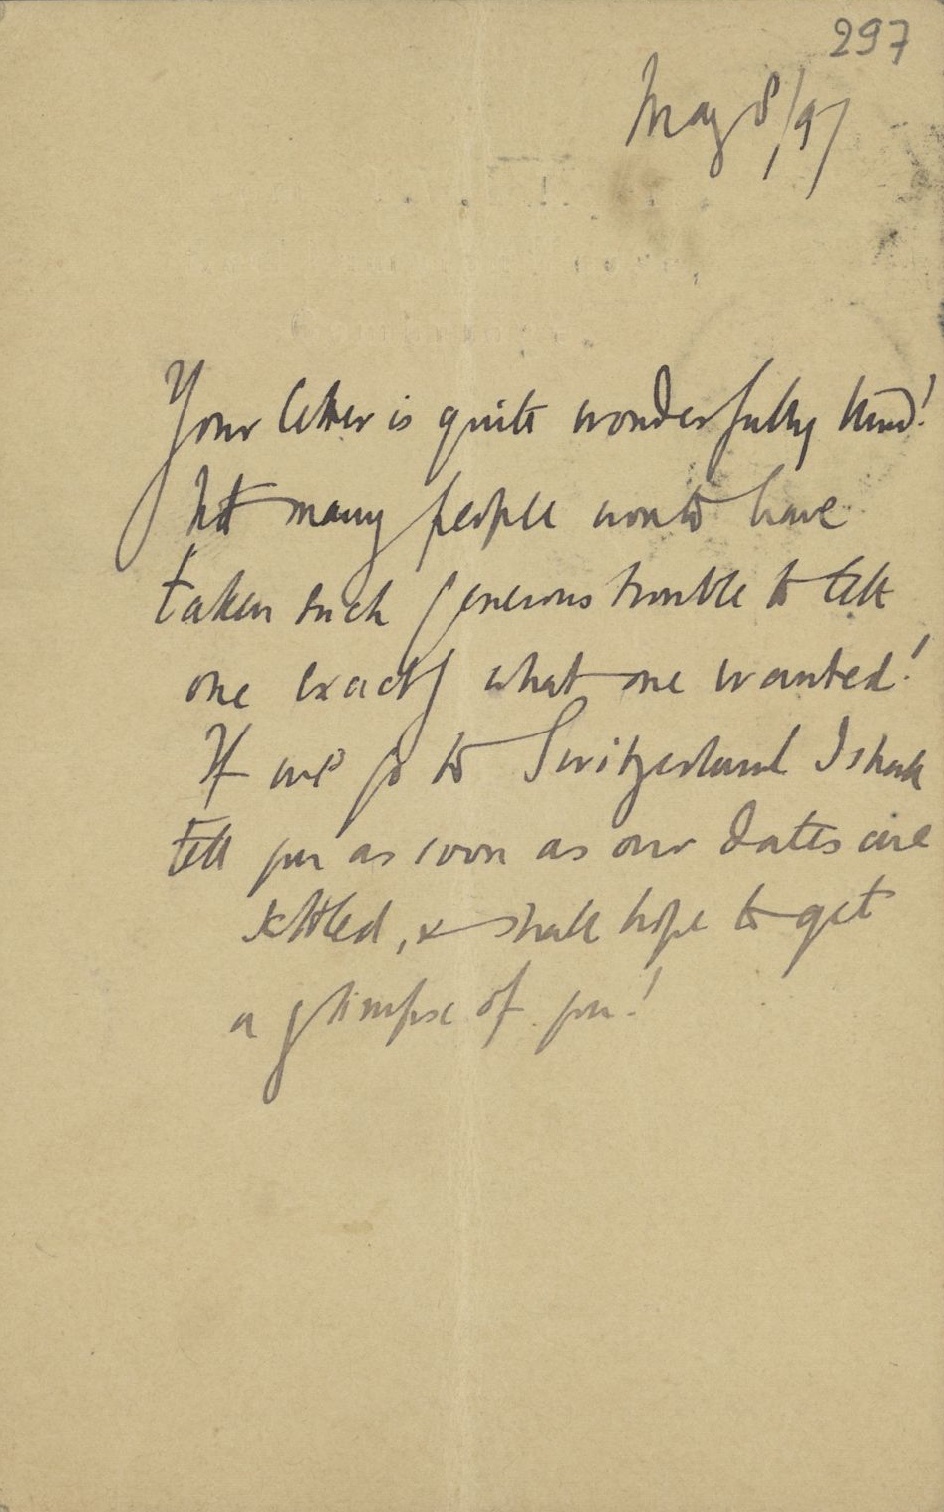 297
May 8/97
Your letter is quite wonderfully kind!
Not many people would have
taken such generous trouble to tell
one exactly what one wanted!
If we go to Switzerland I shall
tell you as soon as our dates are
settled, & shall hope to get
a glimpse of you!